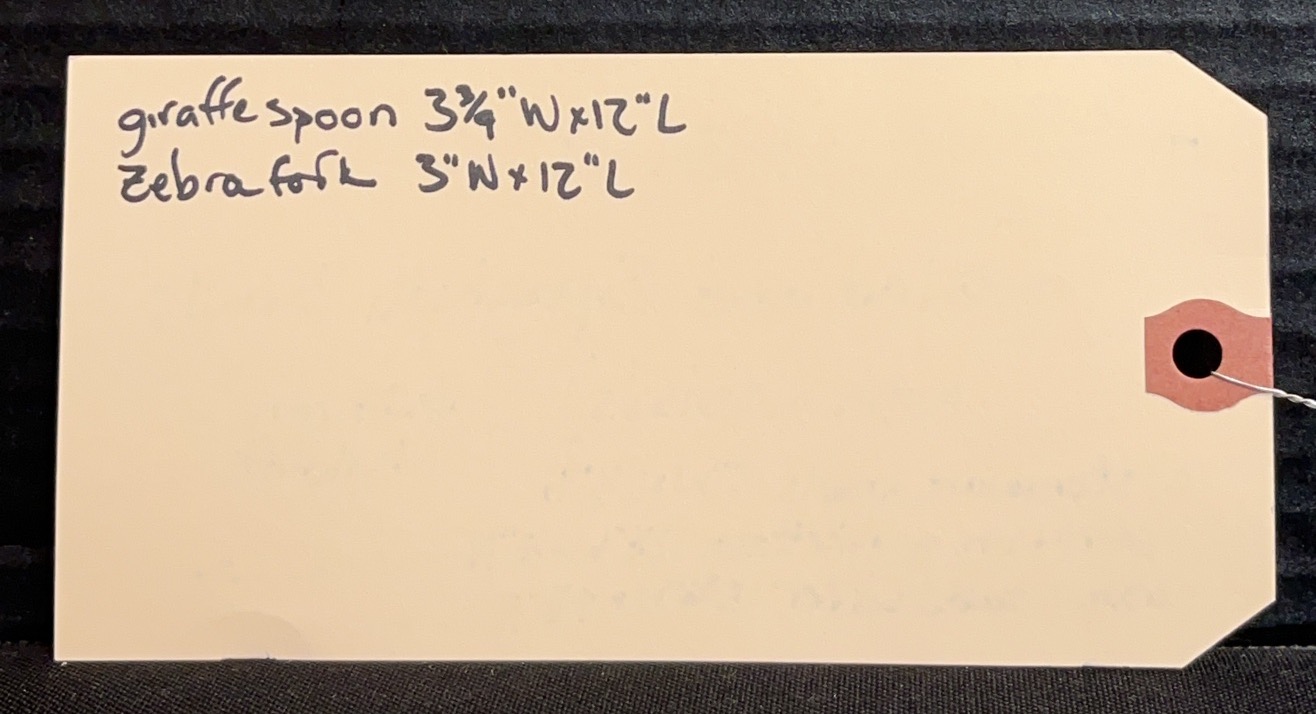 giraffe spoon 3 3/4" W x 12" L
Zebra fork 3" W x 12" L